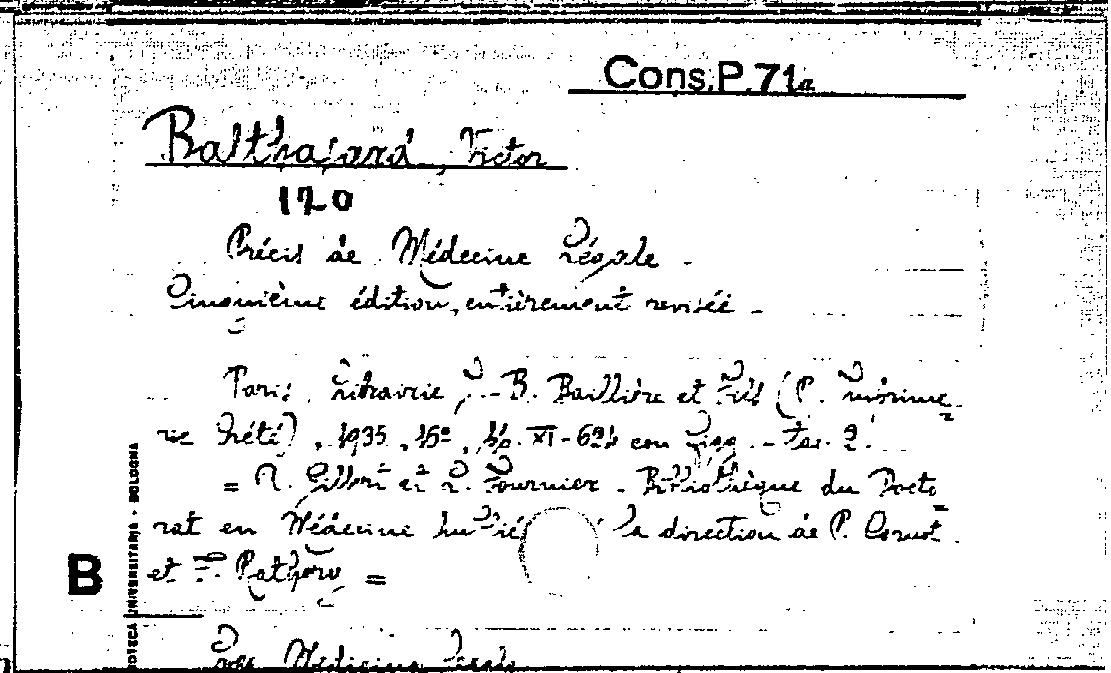 Cons.P.71a
Balthasard, Victor
120
Précis de Médecine légale -
Cinquième édition, entièrement revisée -
Paris, Librairie J.-B. Baillière et fils (P. Imprime=
rie Hérissey), 1935, 16º, pp. XI-621 con figg. - Fr.
= A. Gilbert et L. Fournier - Bibliothèque du Docto=
rat en Médecine publiée la direction de P. Carnot
et F. Rathery =
B
BIBLIOTECA UNIVERSITARIA - BOLOGNA
Medicina legale